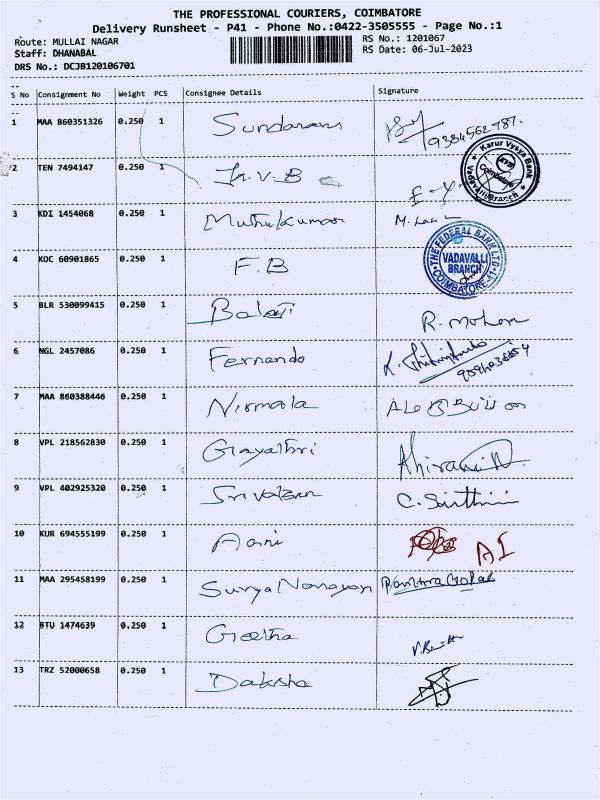 THE PROFESSIONAL COURIERS, COIMBATORE
Delivery Runsheet - P41 - Phone No.:0422-3505555 - Page No.:1
Route: MULLAI NAGAR RS No.: 1201067
Staff: DHANABAL RS Date: 06-Jul-2023
DRS No.: DCJB120106701
S No Consignment No Weight PCS Consignee Details Signature
1 MAA 860351326 0.250 1 Sundaram 9384562787.
2 TEN 7494147 0.250 1 K.V.B Karur Vysya Bank KVB Coimbatore Vadavalli Branch
3 KDI 1454068 0.250 1 Muthukumar
4 KOC 60901865 0.250 1 F.B THE FEDERAL BANK LTD. VADAVALLI BRANCH COIMBATORE-41
5 BLR 530099415 0.250 1 Balaji R. Mohan
6 NGL 2457086 0.250 1 Fernando
7 MAA 860388446 0.250 1 Nirmala
8 VPL 218562830 0.250 1 Gayathri
9 VPL 402925320 0.250 1 Srivatsan
10 KUR 694555199 0.250 1 AI
11 MAA 295458199 0.250 1 Surya Narayan
12 BTU 1474639 0.250 1 Geetha
13 TRZ 52000658 0.250 1 Daksha